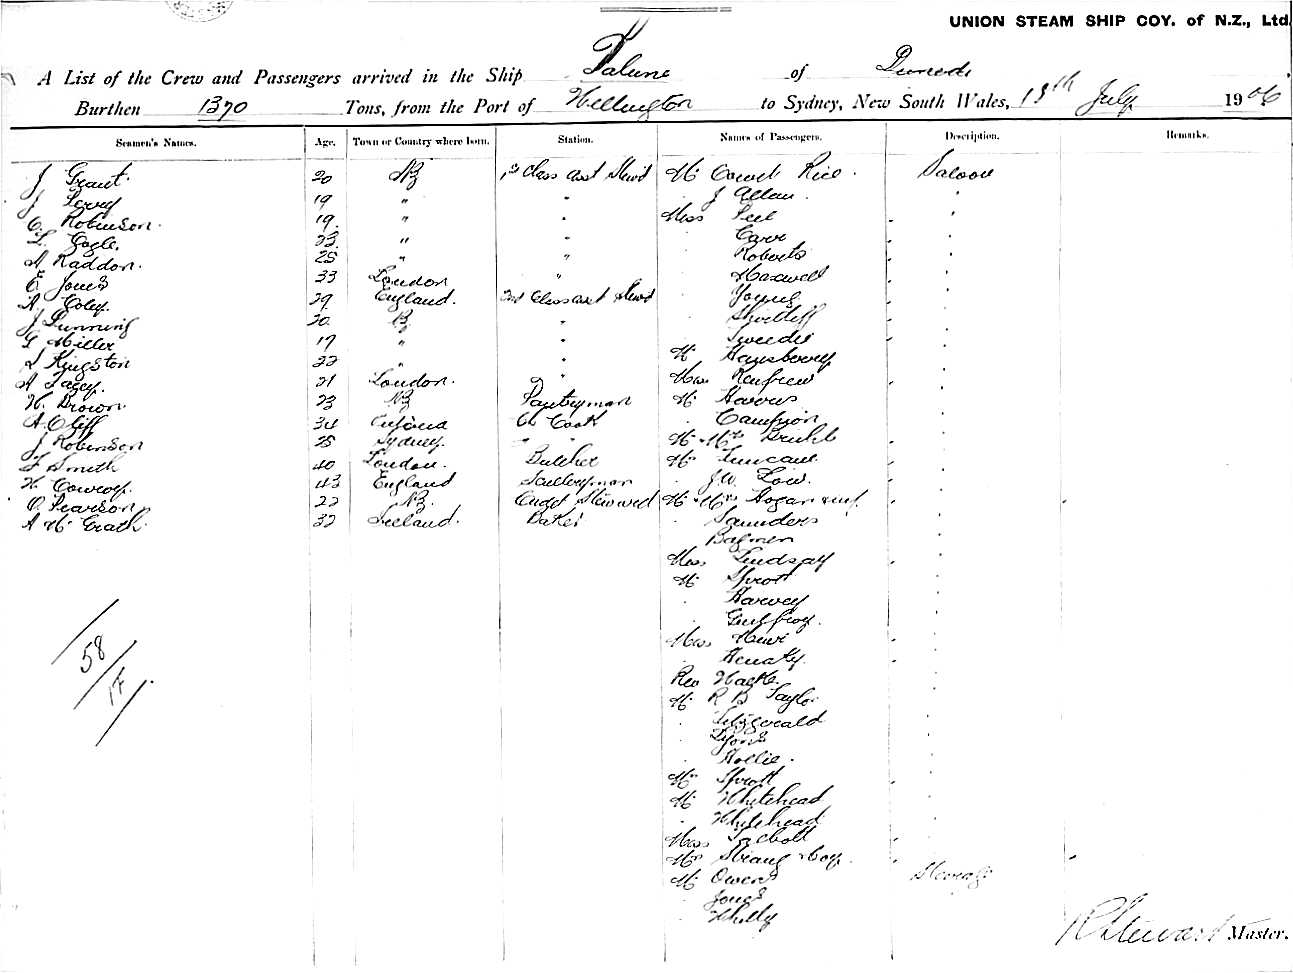 UNION STEAM SHIP COY. of N.Z., Ltd
A List of the Crew and Passengers arrived in the Ship Talune of Dunedin
Burthen 1370 Tons, from the Port of Wellington to Sydney, New South Wales, 18th July 1906
Seamen's Names. Age. Town or Country where born. Station. Names of Passengers. Description. Remarks.
J Grant 20 NZ 1st Class asst Stewd Mr Rice Saloon
J 19 " " J Allan
C. Robinson 19 " " Miss Peel
L. 23 " " Carr
A Raddon 25 " " Roberts
E Jones 33 London " Maxwell
A. Coley 29 England 2nd Class asst Stewd Young
J 20 NZ " Shirtliff
G Miller 19 " " Tweedie
L Kingston 22 " " Mr Hansberry
A 21 London " Miss Renfrew
H. Brown 23 NZ Pantryman Mr Harris
A. Cliff 34 Cook Campion
J Robinson 25 Sydney " " Mr & Mrs
F Smith 40 London Butcher Mr
H 43 England Scalleryman J.W. Low
O. Pearson 22 NZ Steward Mr & Mrs Hogan
A McGrath 32 Ireland Baker Saunders
Miss Lindsay
Mr Sprott
Harvey
Miss
Rev
Mr R B Taylor
Fitzgerald
Lyons
Hollie
Mr Sprott
Mr Whitehead
Whitehead
Miss Talbott
Mrs Strang & boy
Mr Owens Steerage
Jones
58/17
R Stewart Master.